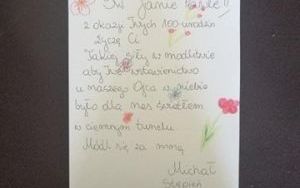 Św. Janie Pawle II
z okazji Twych 100 urodzin
życzę Ci
Takiej siły w modlitwie
aby Twe wstawiennictwo
u naszego Ojca w niebie
było dla nas światłem
w ciemnym tunelu
Módl się za mną
Michał
Stępień